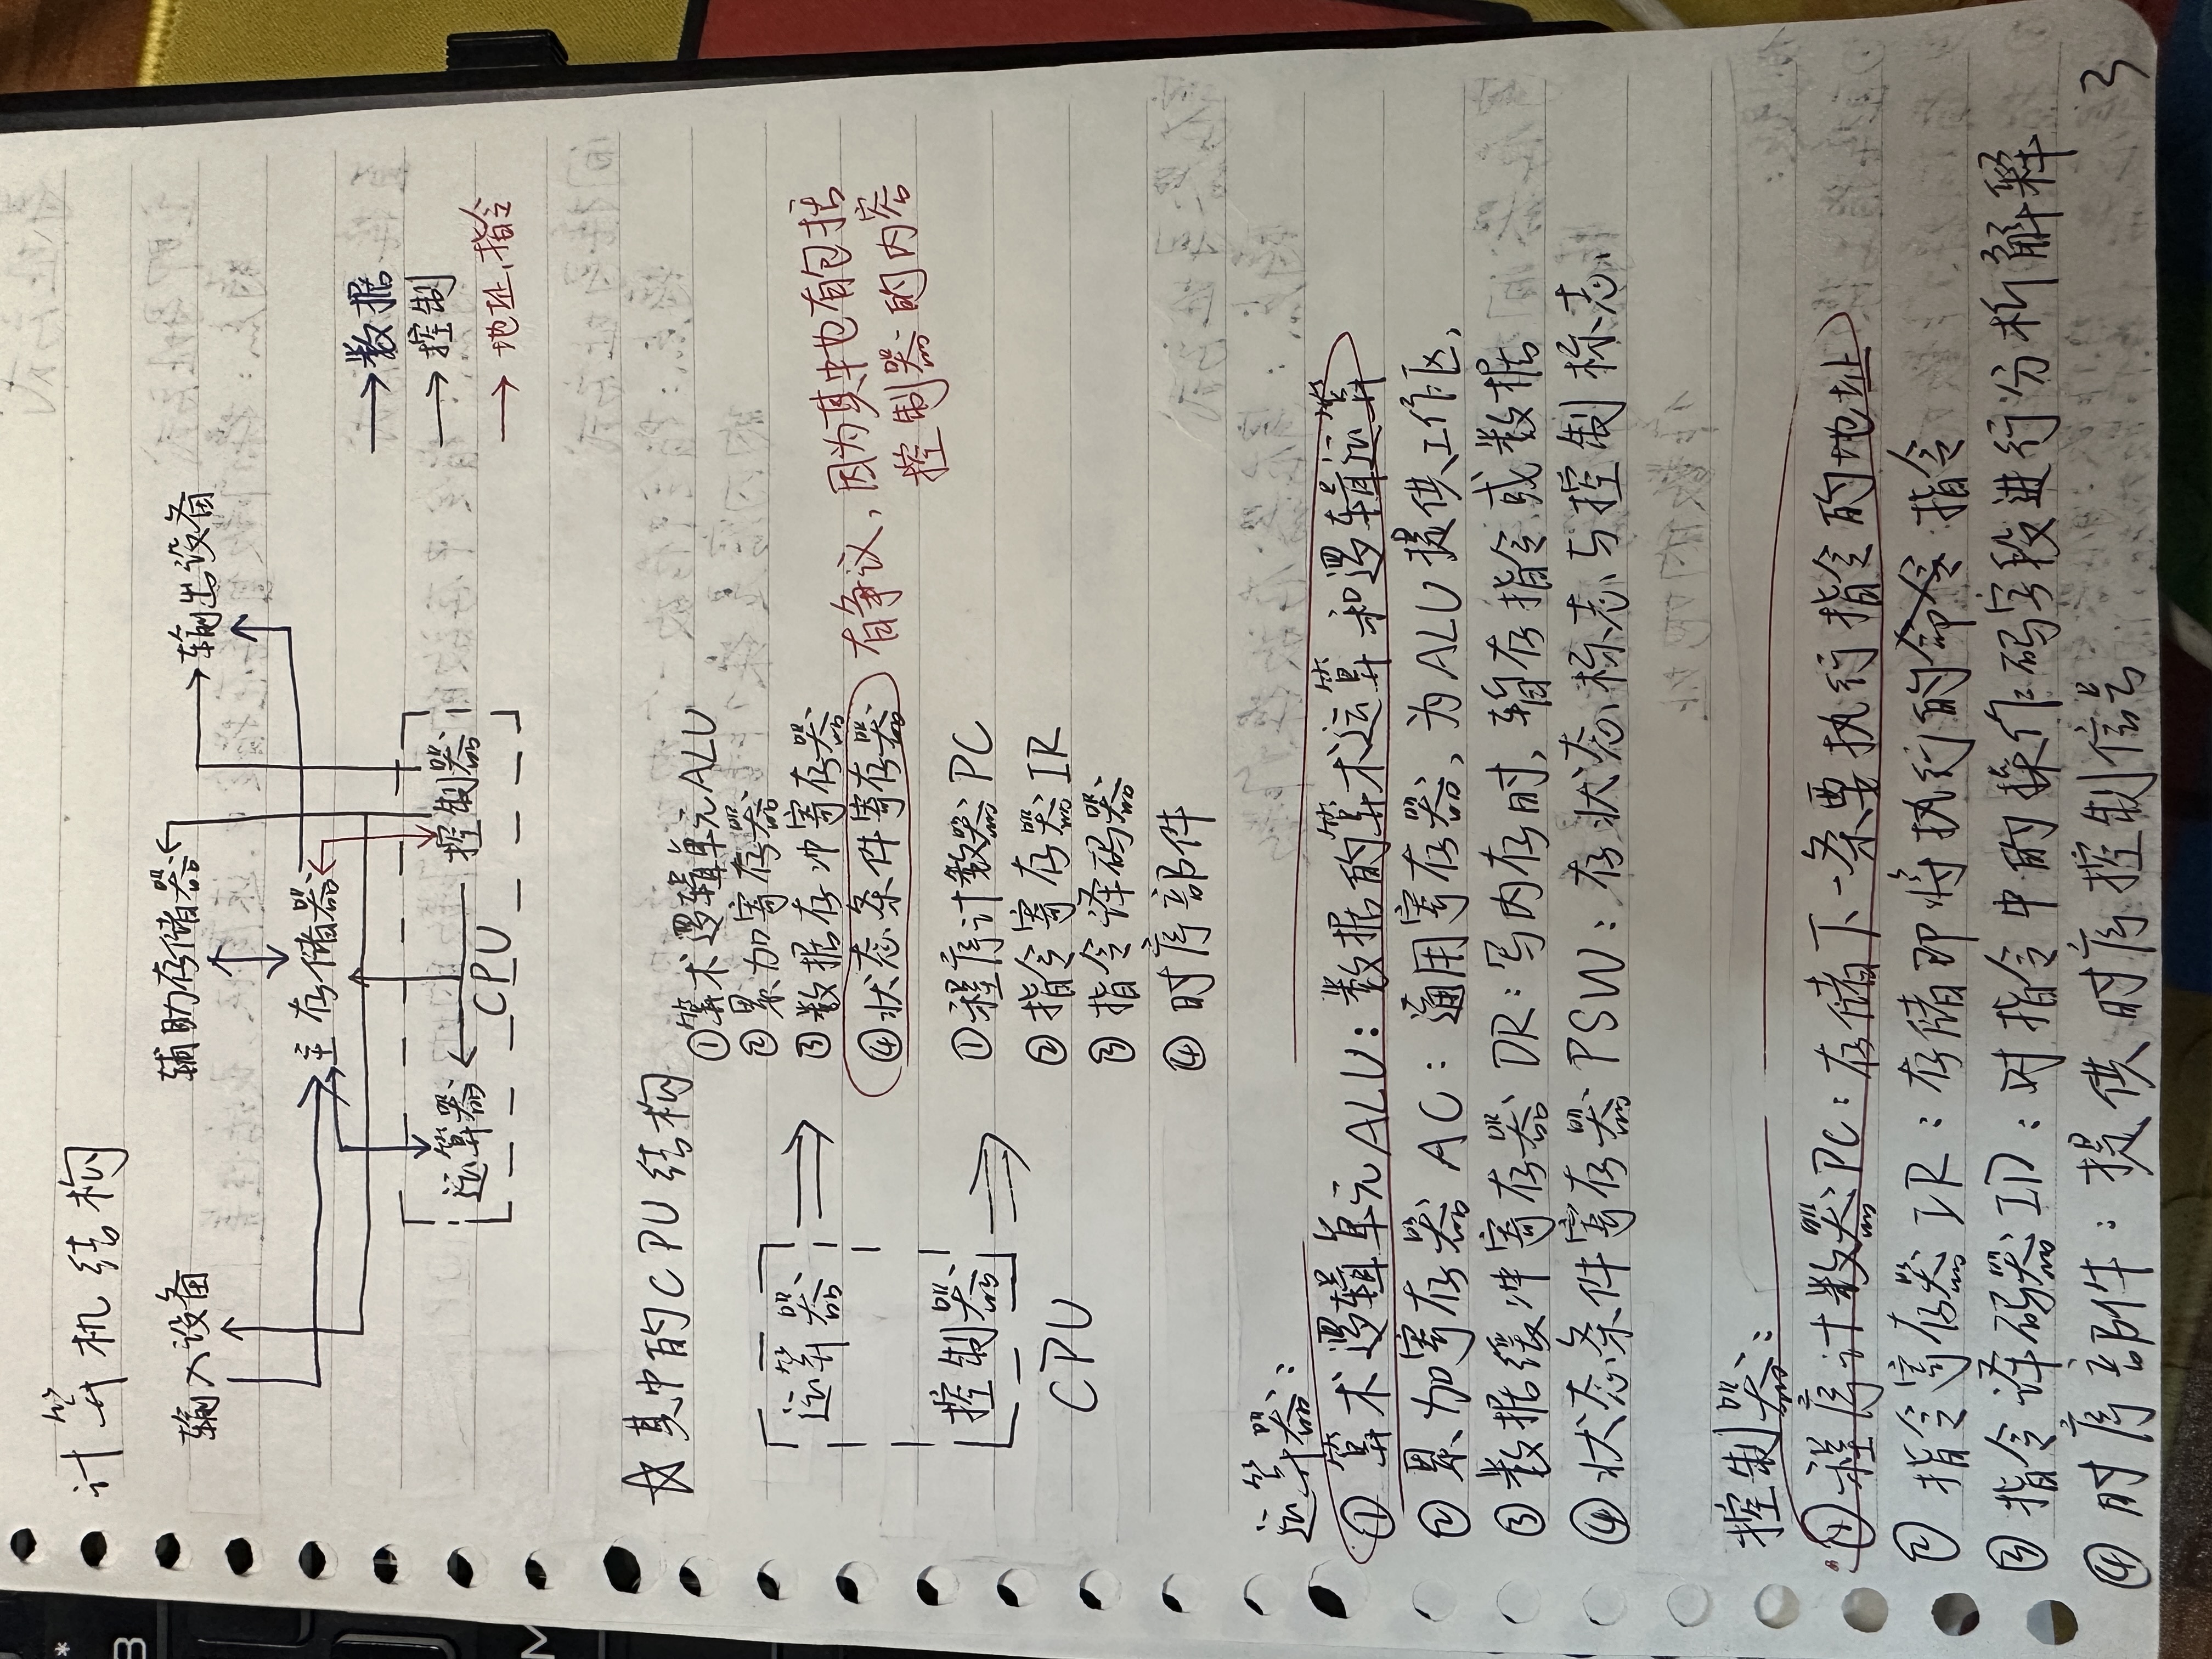 计算机结构
输入设备 辅助存储器 输出设备
主存储器
数据
控制
地址、指令
运算器 控制器
CPU
☆其中的CPU结构
①算术逻辑单元ALU
②累加寄存器
③数据存冲寄存器
④状态条件寄存器 有争议,因为其中也有包括
控制器的内容
运算器
控制器
CPU
①程序计数器PC
②指令寄存器IR
③指令译码器
④时序部件
运算器:
①算术逻辑单元ALU:数据的算术运算和逻辑运算
②累加寄存器 AC:通用寄存器,为ALU提供工作区,
③数据缓冲寄存器 DR:写内存时,暂存指令或数据
④状态条件寄存器 PSW:存状态标志与控制标志
控制器:
①程序计数器PC:存储下一条要执行指令的地址
② 指令寄存器 IR:存储即将执行的命令 指令
③ 指令译码器 ID:对指令中的操作码字段进行分析解释
④ 时序部件:提供时序控制信号
3